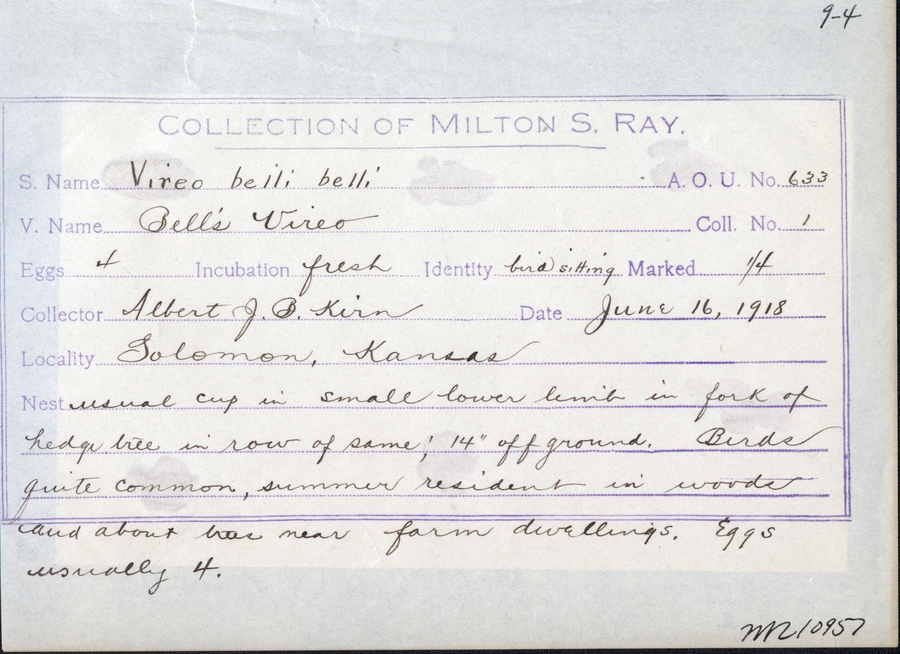 9-4
COLLECTION OF MILTON S. RAY.
S. Name Vireo belli belli A. O. U. No. 633
V. Name Bell's Vireo Coll. No. 1
Eggs 4 Incubation fresh Identity bird sitting Marked 1/4
Collector Albert J. B. Kirn Date June 16, 1918
Locality Solomon, Kansas
Nest usual cup in small lower limb in fork of
hedge tree in row of same; 14" off ground. Birds
quite common, summer resident in woods
and about trees near farm dwellings. Eggs
usually 4.
10957